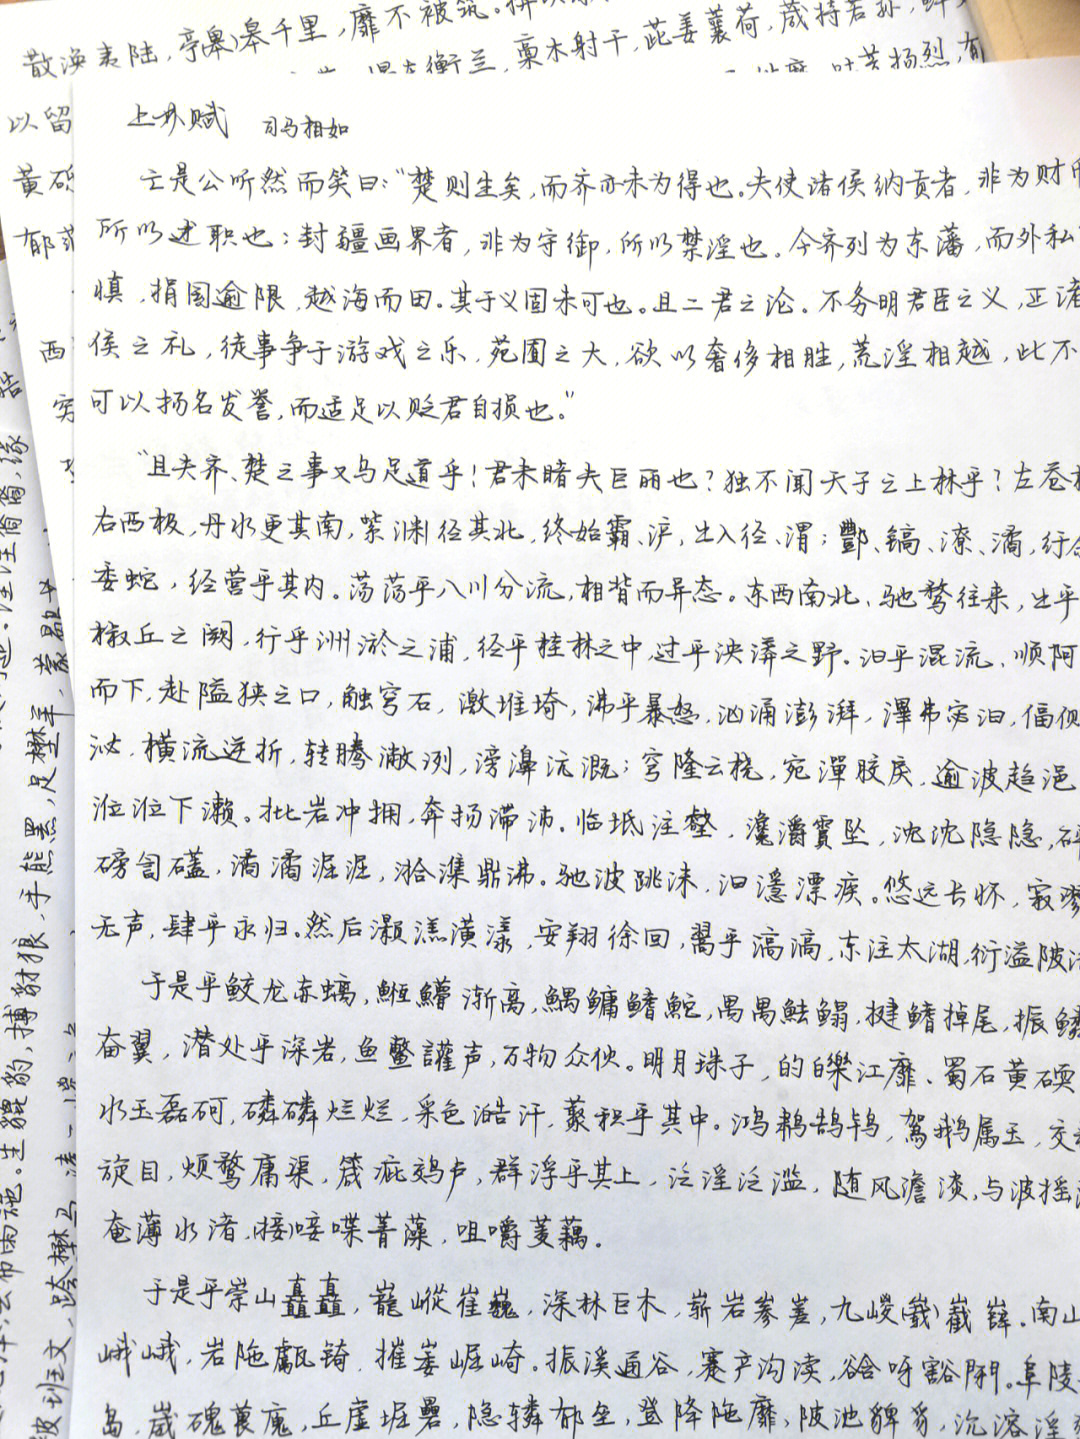 散涣夷陆，亭(皋)皋千里，靡不被筑。
衡兰，槀木射干，茈姜蘘荷，葴持若荪，
扬烈，
以留
黄砾
郁
西
上林赋 司马相如
亡是公听然而笑曰："楚则失矣，而齐亦未为得也。夫使诸侯纳贡者，非为财币
所以述职也；封疆画界者，非为守御，所以禁淫也。今齐列为东藩，而外私
慎，捐国逾限，越海而田。其于义固未可也。且二君之论。不务明君臣之义，正诸
侯之礼，徒事争于游戏之乐，苑囿之大，欲以奢侈相胜，荒淫相越，此不
可以扬名发誉，而适足以贬君自损也。"
"且夫齐、楚之事又乌足道乎！君未睹夫巨丽也？独不闻天子之上林乎？左苍梧
右西极，丹水更其南，紫渊径其北，终始霸、浐，出入径、渭；酆、镐、潦、潏，纡余
委蛇，经营乎其内。荡荡乎八川分流，相背而异态。东西南北、驰骛往来，出乎
椒丘之阙，行乎洲淤之浦，经乎桂林之中，过乎泱漭之野。汩乎混流、顺阿
而下，赴隘狭之口，触穹石，激堆埼，沸乎暴怒，汹涌澎湃，滭弗宓汩，偪侧
泌，横流逆折，转腾潎洌，滂濞沆溉；穹隆云桡，宛潬胶戾，逾波趋浥
涖涖下濑。批岩冲拥，奔扬滞沛。临坻注壑，瀺灂霣坠，沈沈隐隐，砰
磅訇礚，潏潏淈淈，湁潗鼎沸。驰波跳沫，汩㶏漂疾。悠远长怀，寂漻
无声，肆乎永归。然后灏溔潢漾，安翔徐回，翯乎滈滈，东注太湖，衍溢陂池
于是乎鲛龙赤螭，䱭䲛渐离，鰅鳙鳍鮀，禺禺魼鳎，揵鳍掉尾，振鳞
奋翼，潜处乎深岩，鱼鳖讙声，万物众伙。明月珠子，的皪江靡、蜀石黄碝
水玉磊砢，磷磷烂烂，采色澔汗，藂积乎其中。鸿鹔鹄鸨，鴐鹅属玉，交
旋目，烦鹜庸渠，箴疵鵁卢，群浮乎其上，泛淫泛滥，随风澹淡，与波摇荡
奄薄水渚，(接)唼喋菁藻，咀嚼菱藕。
于是乎崇山矗矗，巃嵷崔巍，深林巨木，崭岩参嵳，九嵕(巀)巀嶭。南山
峨峨，岩陁甗锜，摧崣崛崎。振溪通谷，蹇产沟渎，谽呀豁閜。阜陵
岛，崴磈嵔廆，丘虚堀礨，隐辚郁垒，登降陁靡，陂池貏豸，沇溶淫鬻
生貔豹，搏豺狼，手熊罴，足壄羊，蒙鹖
被班文，跨壄马